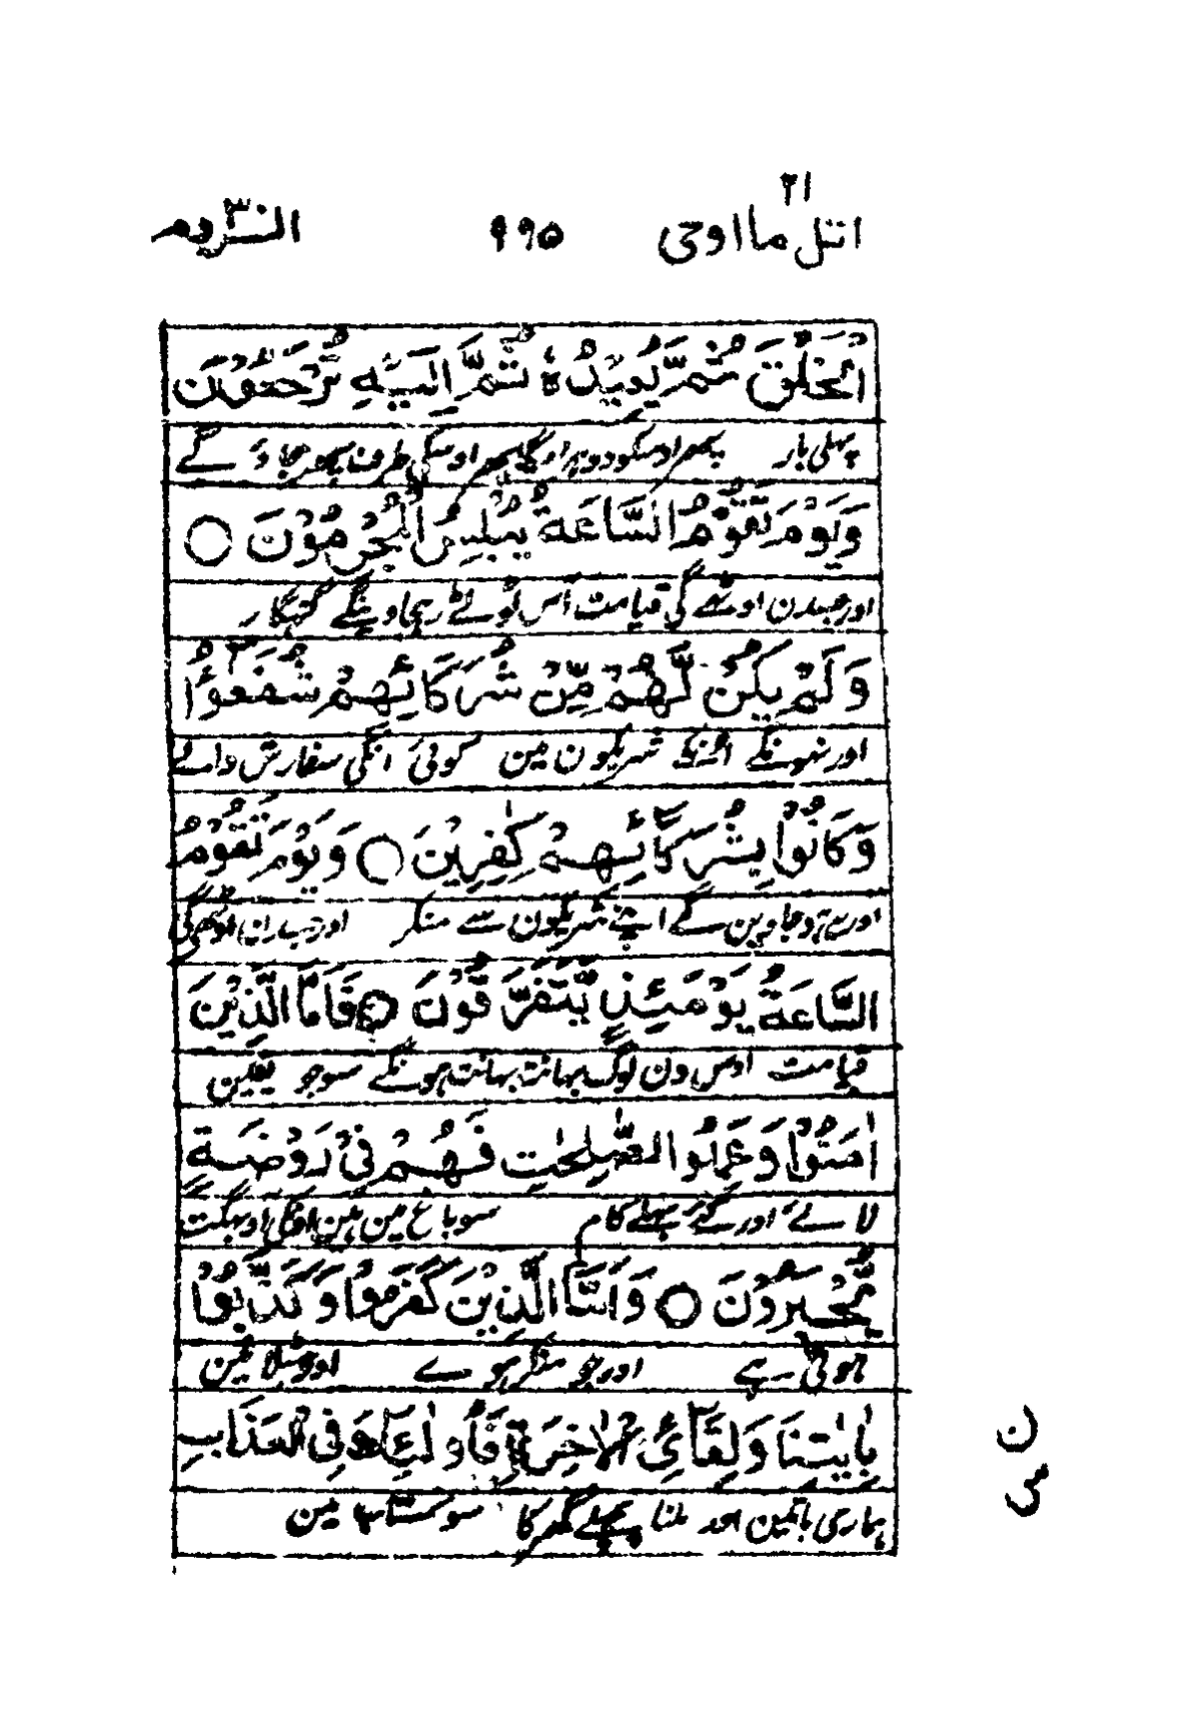 اتل ما اوحی ۲۱ ۹۹۵ الروم ۳۰
الْخَلْقَ ثُمَّ يُعِيْدُهٗ ثُمَّ اِلَيْهِ تُرْجَعُوْنَ
پہلی بار پھر اوسکو دوہراویگا پھر اوسکی طرف پھر جاؤ گے
وَيَوْمَ تَقُوْمُ السَّاعَةُ يُبْلِسُ الْمُجْرِمُوْنَ ○
اور جسدن اوٹھے گی قیامت آس ٹوٹے رہجاوینگے گنہگار
وَلَمْ يَكُنْ لَّهُمْ مِّنْ شُرَكَآئِهِمْ شُفَعٰٓؤُا
اور نہونگے اونکے شریکون مین کوئی انکی سفارش والے
وَكَانُوْا بِشُرَكَآئِهِمْ كٰفِرِيْنَ ○ وَيَوْمَ تَقُوْمُ
اور یہ ہو جاوین گے اپنے شریکون سے منکر اور جسدن اوٹھی گی
السَّاعَةُ يَوْمَئِذٍ يَّتَفَرَّقُوْنَ ○ فَاَمَّا الَّذِيْنَ
قیامت اوس دن لوگ بھانت بھانت ہونگے سو جو یقین
اٰمَنُوْا وَعَمِلُوا الصّٰلِحٰتِ فَهُمْ فِيْ رَوْضَةٍ
لائے اور کئے بھلے کام سو باغ مین ہین اونکی آوبھگت
يُّحْبَرُوْنَ ○ وَاَمَّا الَّذِيْنَ كَفَرُوْا وَكَذَّبُوْا
ہوتی رہے اور جو منکر ہوے اور جھٹلائین
بِاٰيٰتِنَا وَلِقَآئِ الْاٰخِرَةِ فَاُولٰٓئِكَ فِي الْعَذَابِ
ہماری باتین اور ملنا پچھلے گھر کا سو مین